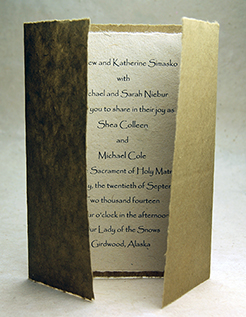 ew and Katherine Simasko
with
chael and Sarah Niebur
you to share in their joy as
Shea Colleen
and
Michael Cole
Sacrament of Holy Matr
y, the twentieth of Septem
two thousand fourteen
ur o'clock in the afternoon
ur Lady of the Snows
Girdwood, Alaska